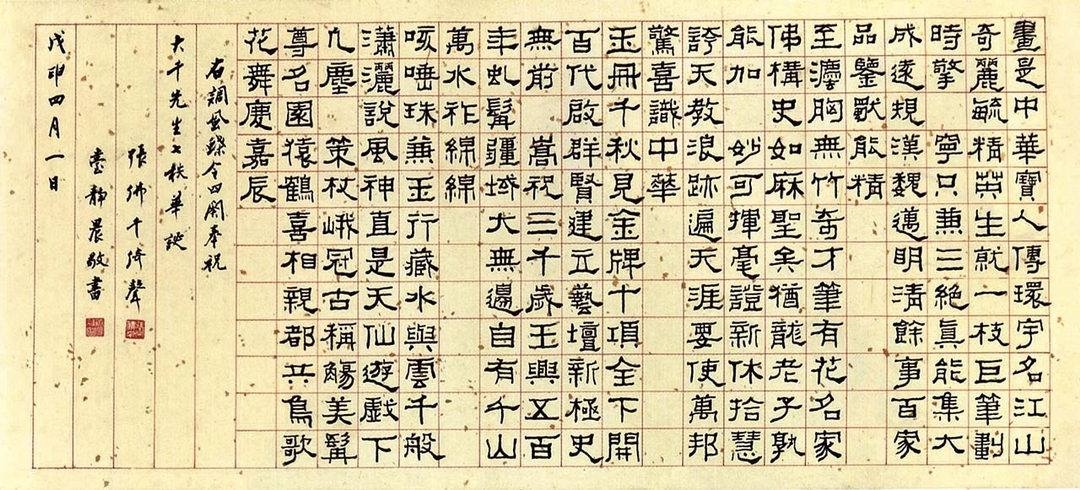 畫是中華寶人傳環宇名江山
奇麗毓精英生就一枝巨筆劃
時擎　寧只兼三絕真能集大
成遠規漢魏邁明清餘事百家
品鑒猷能精
至灋胸無竹奇才筆有花名家
佛構史如麻聖矣猶龍老子孰
能加　妙可揮毫證新休拾慧
誇天教浪跡遍天涯要使萬邦
驚喜識中華
玉冊千秋見金牌十項全下開
百代啟群賢建立藝壇新極史
無前　嵩祝三千歲玉興五百
年虬髯疆域大無邊自有千山
萬水祚綿綿
咳唾珠兼玉行藏水與雲千般
瀟灑說風神直是天仙遊戲下
凡塵　策杖峨冠古稱觴美髯
尊名園猿鶴喜相親都共鳥歌
花舞慶嘉辰
右調風蝶令四闋奉祝
大千先生七秩華誕
張佛千倚聲
臺靜農敬書
戊申四月一日